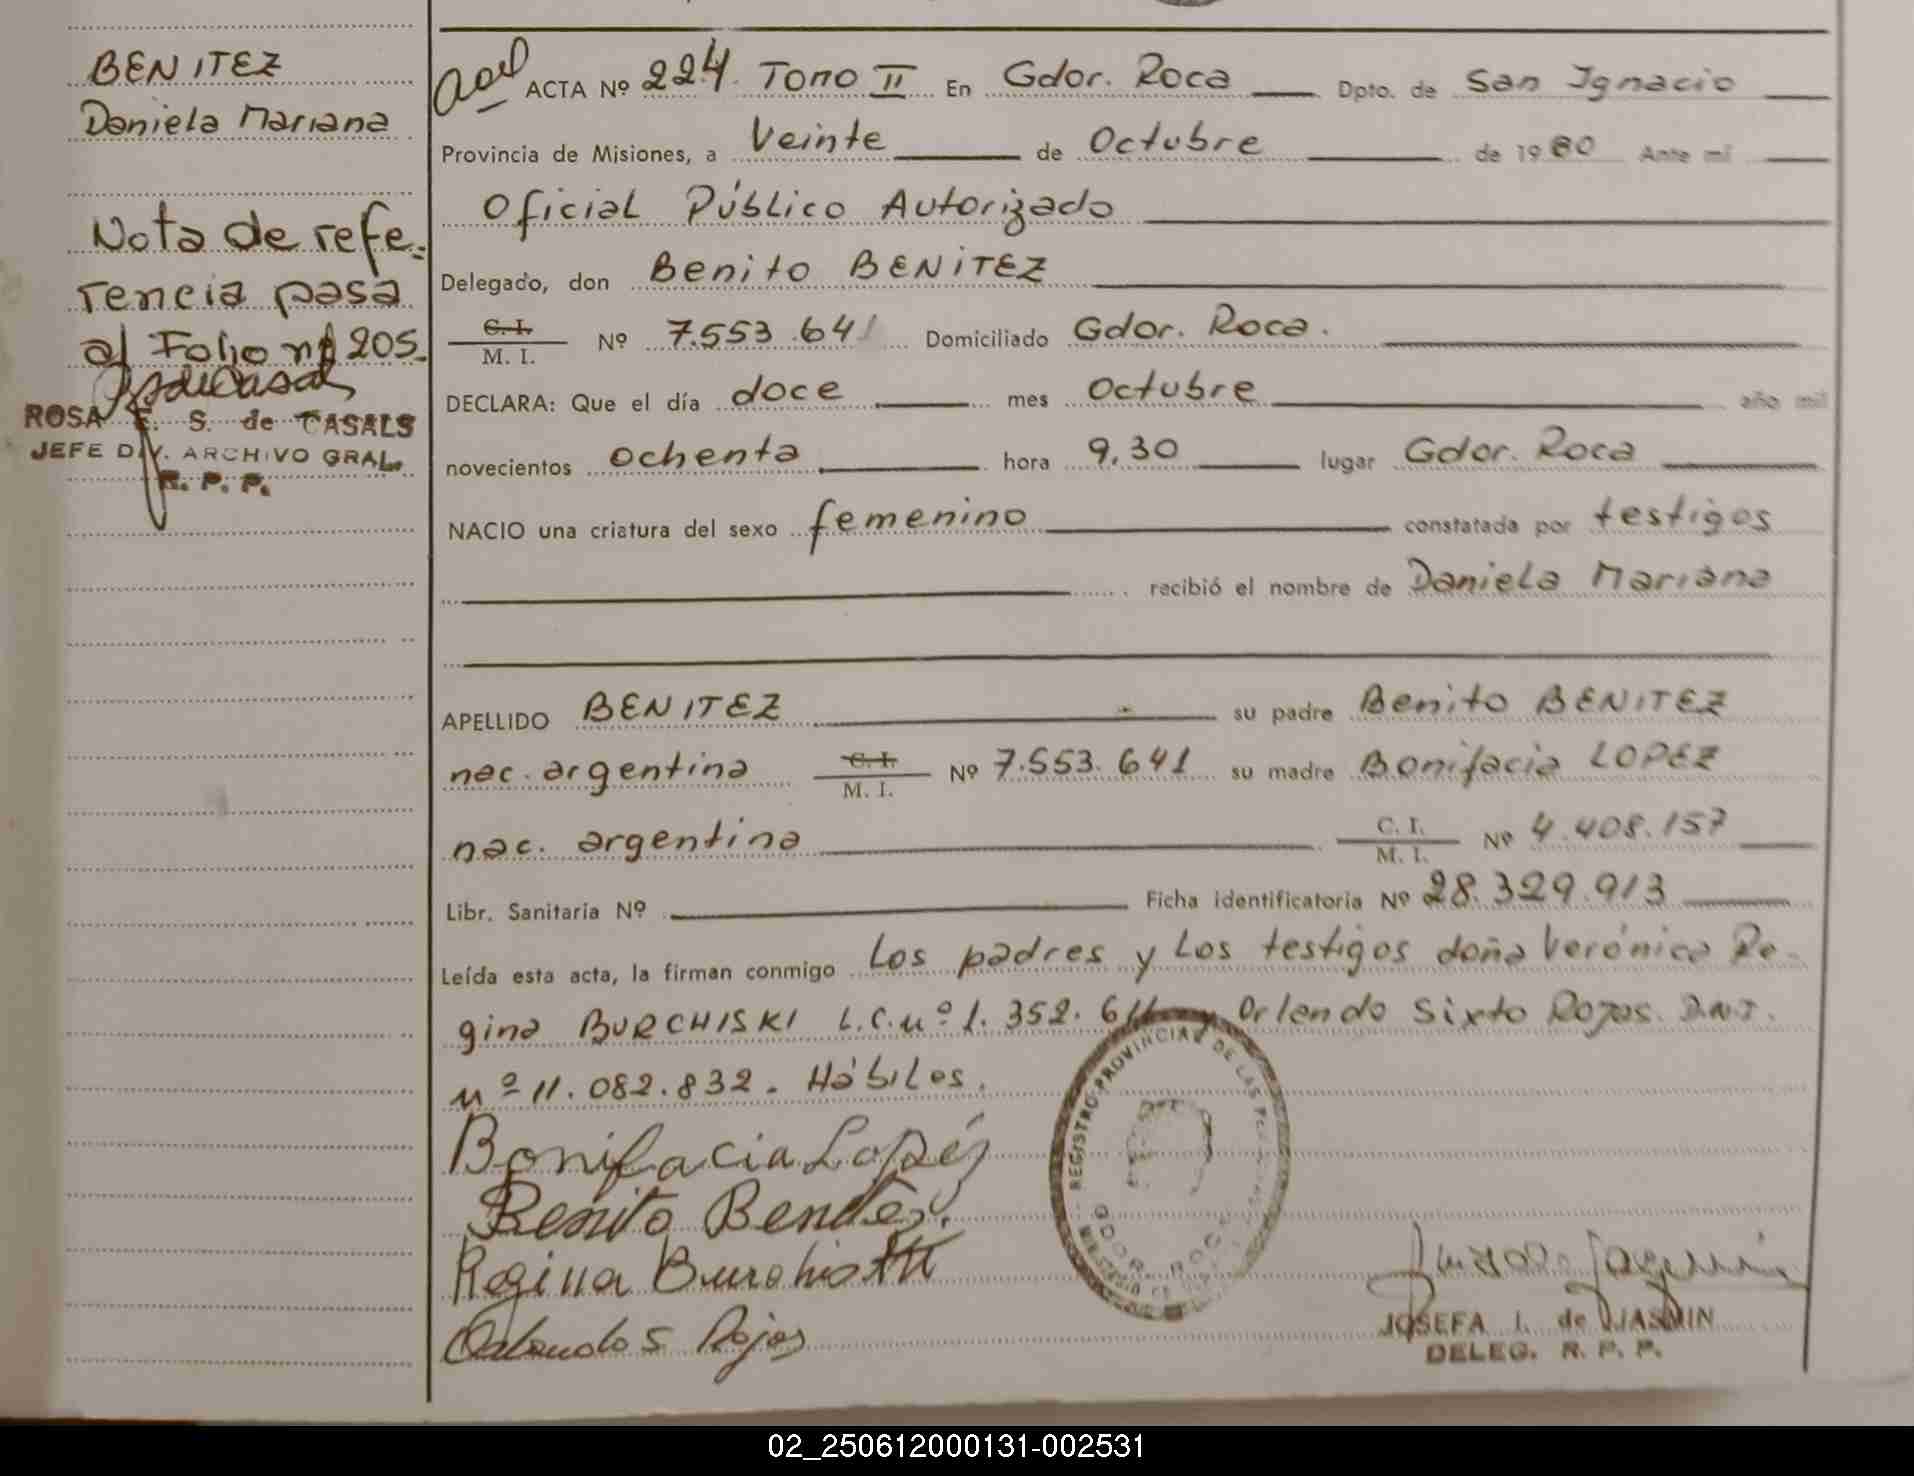 BENITEZ
Daniela Mariana
Nota de refe-
rencia pasa
al Folio nº 205.
ROSA E. S. de CASALS
JEFE DIV. ARCHIVO GRAL.
R. P. P.
ACTA Nº 224 Tomo II En Gdor. Roca Dpto. de San Ignacio
Provincia de Misiones, a Veinte de Octubre de 1980 Ante mí
Oficial Público Autorizado
Delegado, don Benito BENITEZ
C. I. Nº 7.553.641 Domiciliado Gdor. Roca.
M. I.
DECLARA: Que el día doce mes Octubre año mil
novecientos ochenta hora 9,30 lugar Gdor. Roca
NACIO una criatura del sexo femenino constatada por testigos
recibió el nombre de Daniela Mariana
APELLIDO BENITEZ su padre Benito BENITEZ
nac. argentina C. I. Nº 7.553.641 su madre Bonifacia LOPEZ
M. I.
nac. argentina C. I. Nº 4.408.157
M. I.
Libr. Sanitaria Nº Ficha identificatoria Nº 28.329.913
Leída esta acta, la firman conmigo Los padres y Los testigos doña Verónica Re-
gina BURCHISKI L.C.nº 1.352.611 y Orlando Sixto Rojas. D.N.I.
nº 11.082.832. Hábiles.
Bonifacia Lopéz
Benito Benitez.
Regina
Orlando S Rojas
REGISTRO PROVINCIAL DE LAS PERSONAS
GDOR. ROCA
JOSEFA I. de JASMIN
DELEG. R. P. P.
02_250612000131-002531